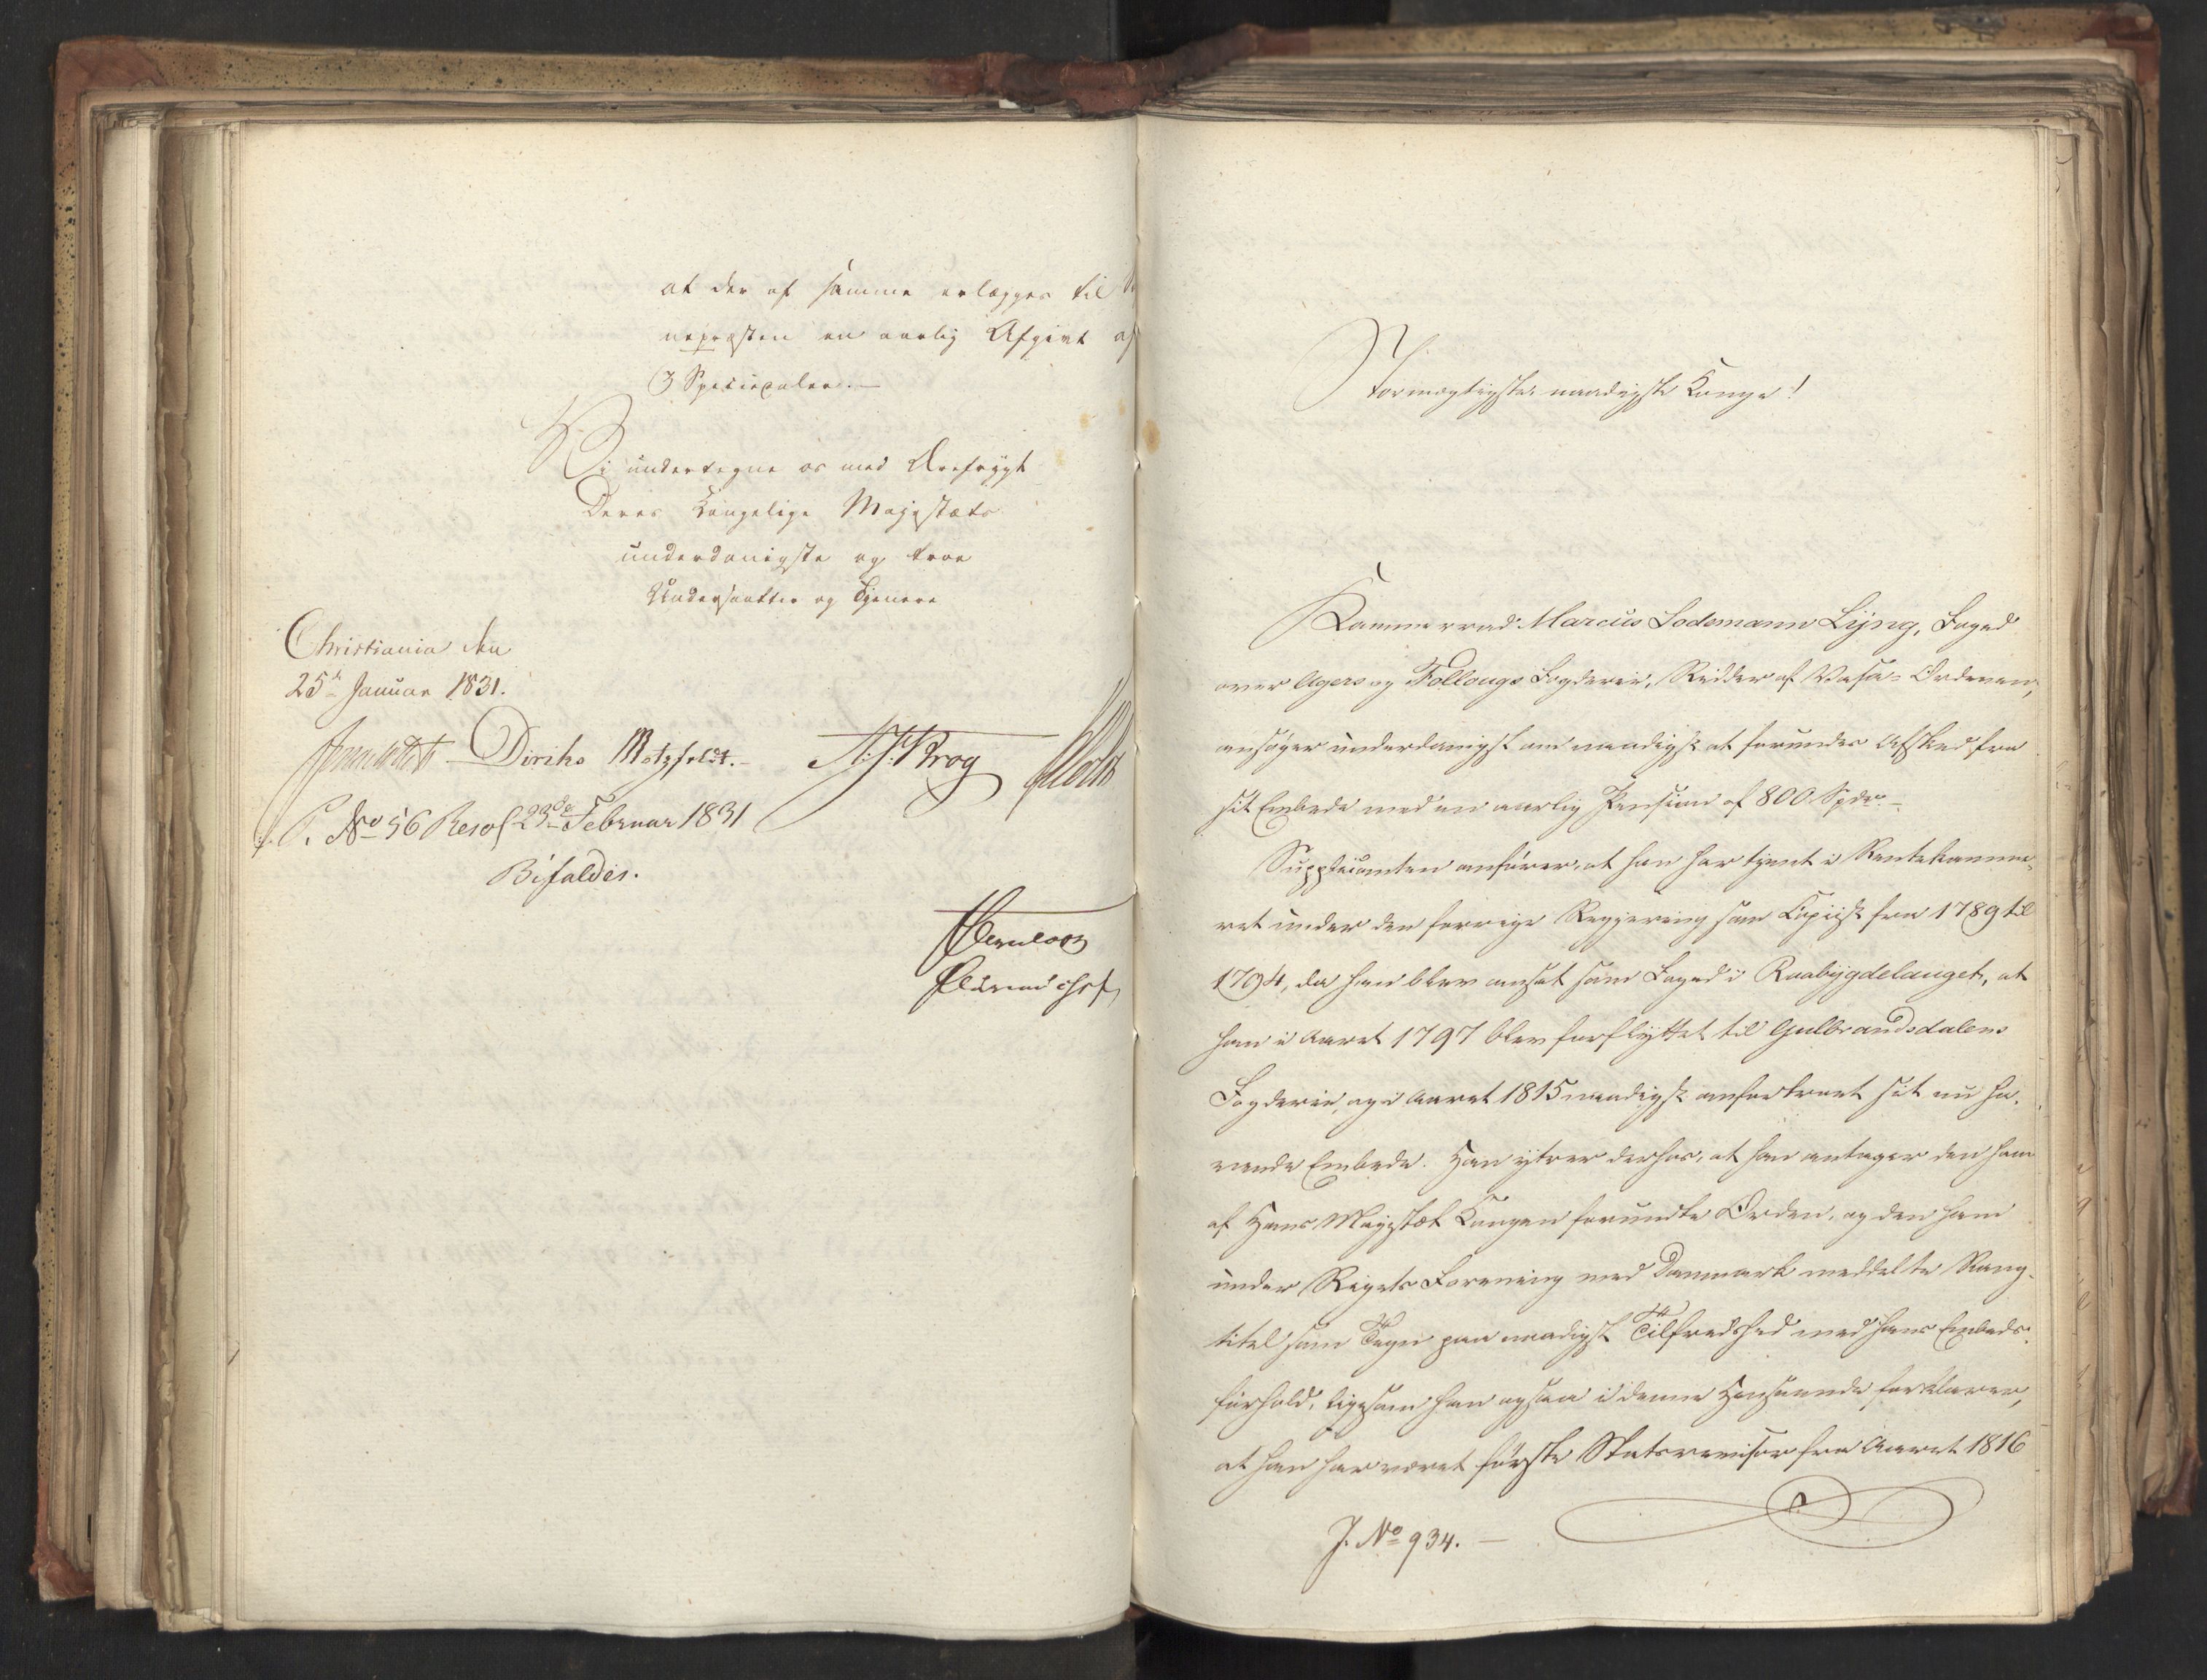 at der af samme erlægges til
nepræsten en aarlig Afgivt af
3 Speciedaler. —
Vi undertegne os med Ærefrygt
Deres Kongelige Majestæts
underdanigste og troe
Undersaatter og Tjenere
Christiania den
25de Januar 1831.
Diriks Motzfeldt. N. J. Krog
P. No 56 Resol 23de Februar 1831
Bifaldes.
Stormægtigste, naadigste Konge!
Kammerraad Marcus Sodemann Lÿng, Foged
over Agers og Follougs Fogderie, Ridder af Vasa-Ordenen,
ansøger underdanigst om naadigst at forundes Afsked fra
sit Embede med en aarlig Pension af 800 Spdr. —
Supplicanten anfører, at han har tjent i Rentekamme-
ret under den forrige Regjering som Copiist fra 1789 til
1794, da han blev ansat som Foged i Raabÿgdelauget, at
han i Aaret 1797 blev forflyttet til Gulbrandsdalens
Fogderie, og i Aaret 1815 naadigst anfortroet sit nu ha-
vende Embede. Han ytrer derhos, at han antager den ham
af Hans Majestæt Kongen forundte Orden, og den ham
under Rigets Forening med Danmark meddelte Rang-
titel som Tegn paa naadigst Tilfredshed med hans Embeds-
forhold, ligesom han ogsaa i denne Henseende forklarer,
at han har været første Statsrevisor fra Aaret 1816
J. No 934. —